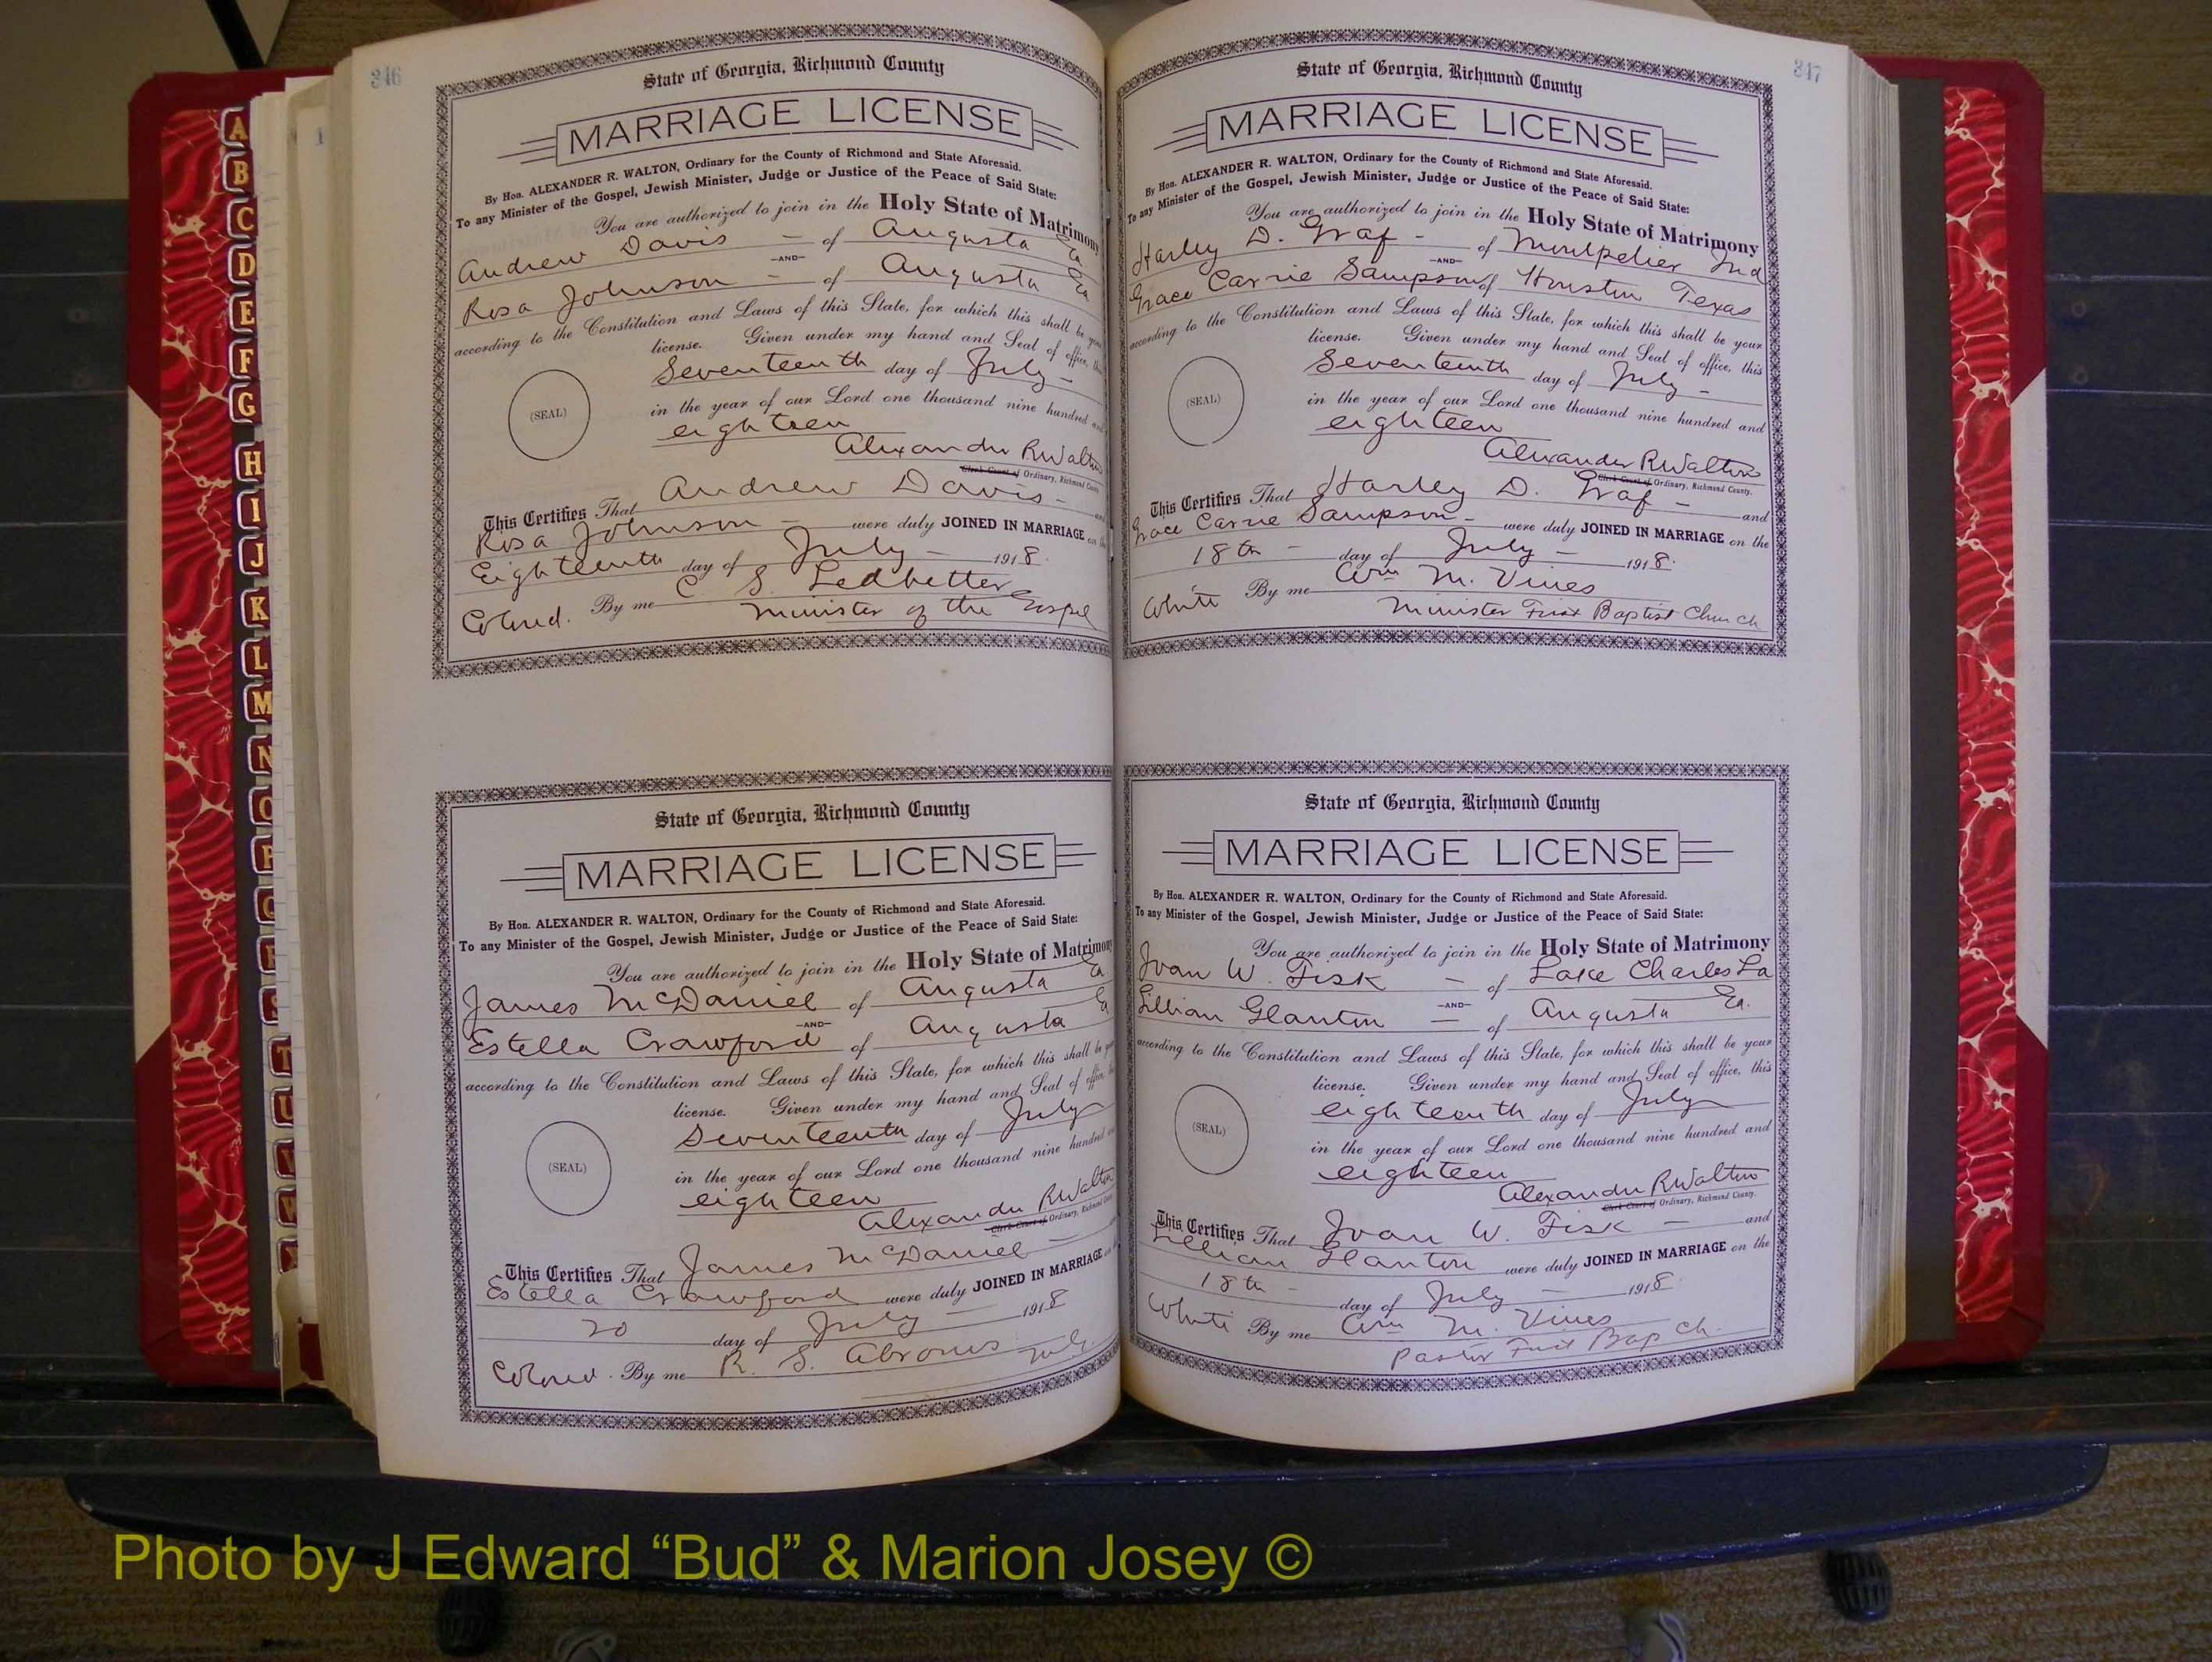 346
State of Georgia, Richmond County
MARRIAGE LICENSE
By Hon. ALEXANDER R. WALTON, Ordinary for the County of Richmond and State Aforesaid.
To any Minister of the Gospel, Jewish Minister, Judge or Justice of the Peace of Said State:
You are authorized to join in the Holy State of Matrimony
Andrew Davis - of Augusta Ga
-AND-
Rosa Johnson - of Augusta Ga
according to the Constitution and Laws of this State, for which this shall be your
license. Given under my hand and Seal of office, this
Seventeenth day of July -
(SEAL)
in the year of our Lord one thousand nine hundred and
eighteen
Alexander R Walton
Clerk Court of Ordinary, Richmond County
This Certifies That Andrew Davis - and
Rosa Johnson - were duly JOINED IN MARRIAGE on the
Eighteenth day of July - 1918.
Colored. By me C. S. Ledbetter
Minister of the Gospel
State of Georgia, Richmond County
MARRIAGE LICENSE
By Hon. ALEXANDER R. WALTON, Ordinary for the County of Richmond and State Aforesaid.
To any Minister of the Gospel, Jewish Minister, Judge or Justice of the Peace of Said State:
You are authorized to join in the Holy State of Matrimony
James McDaniel of Augusta Ga
-AND-
Estella Crawford of Augusta Ga
according to the Constitution and Laws of this State, for which this shall be your
license. Given under my hand and Seal of office, this
Seventeenth day of July
(SEAL)
in the year of our Lord one thousand nine hundred and
eighteen
Alexander R Walton
Clerk Court of Ordinary, Richmond County
This Certifies That James McDaniel -
Estella Crawford were duly JOINED IN MARRIAGE on
20 day of July - 1918
Colored. By me R. S. Abrons
347
State of Georgia, Richmond County
MARRIAGE LICENSE
By Hon. ALEXANDER R. WALTON, Ordinary for the County of Richmond and State Aforesaid.
To any Minister of the Gospel, Jewish Minister, Judge or Justice of the Peace of Said State:
You are authorized to join in the Holy State of Matrimony
Harley D. Graf - of Montpelier Ind
-AND-
Grace Carrie Sampson of Houston Texas
according to the Constitution and Laws of this State, for which this shall be your
license. Given under my hand and Seal of office, this
Seventeenth day of July -
(SEAL)
in the year of our Lord one thousand nine hundred and
eighteen
Alexander R Walton
Clerk Court of Ordinary, Richmond County.
This Certifies That Harley D. Graf - and
Grace Carrie Sampson - were duly JOINED IN MARRIAGE on the
18th - day of July - 1918.
White By me Wm M. Vines
Minister First Baptist Church
State of Georgia, Richmond County
MARRIAGE LICENSE
By Hon. ALEXANDER R. WALTON, Ordinary for the County of Richmond and State Aforesaid.
To any Minister of the Gospel, Jewish Minister, Judge or Justice of the Peace of Said State:
You are authorized to join in the Holy State of Matrimony
Ivan W. Fisk - of Lake Charles La
-AND-
Lillian Glanton - of Augusta Ga.
according to the Constitution and Laws of this State, for which this shall be your
license. Given under my hand and Seal of office, this
eighteenth day of July
(SEAL)
in the year of our Lord one thousand nine hundred and
eighteen
Alexander R Walton
Clerk Court of Ordinary, Richmond County.
This Certifies That Ivan W. Fisk - and
Lillian Glanton were duly JOINED IN MARRIAGE on the
18th - day of July - 1918.
White By me Wm M. Vines
Pastor First Bap Ch.
A
B
C
D
E
F
G
H
I
J
K
L
M
N
O
P
Q
R
S
T
U
V
W
Photo by J Edward “Bud” & Marion Josey ©